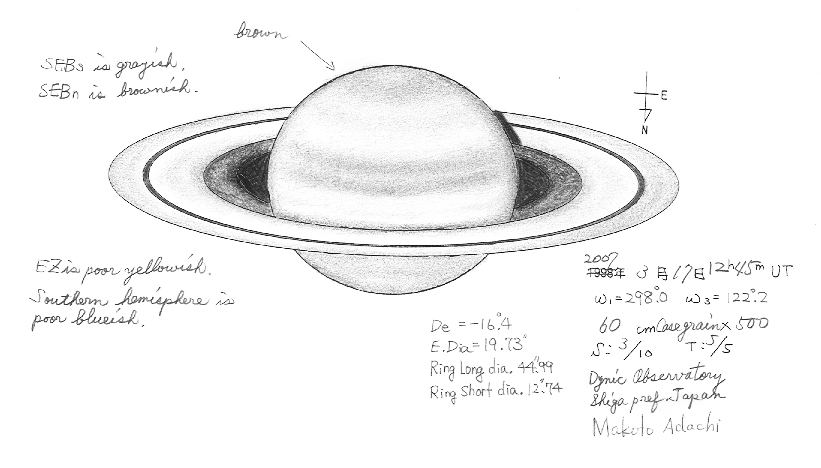 brown
SEBs is grayish.
SEBn is brownish.
E
N
EZ is poor yellowish.
Southern hemisphere is
poor blueish.
De = -16.°4
E.Dia = 19."73
Ring Long dia. 44."99
Ring Short dia. 12."74
2007
1998年 3月17日 12h45m UT
ω1=298.°0 ω3=122.°2
60 cm Casegrain x 500
S: 3/10 T: 5/5
Dynic Observatory
Shiga pref. Japan
Makoto Adachi